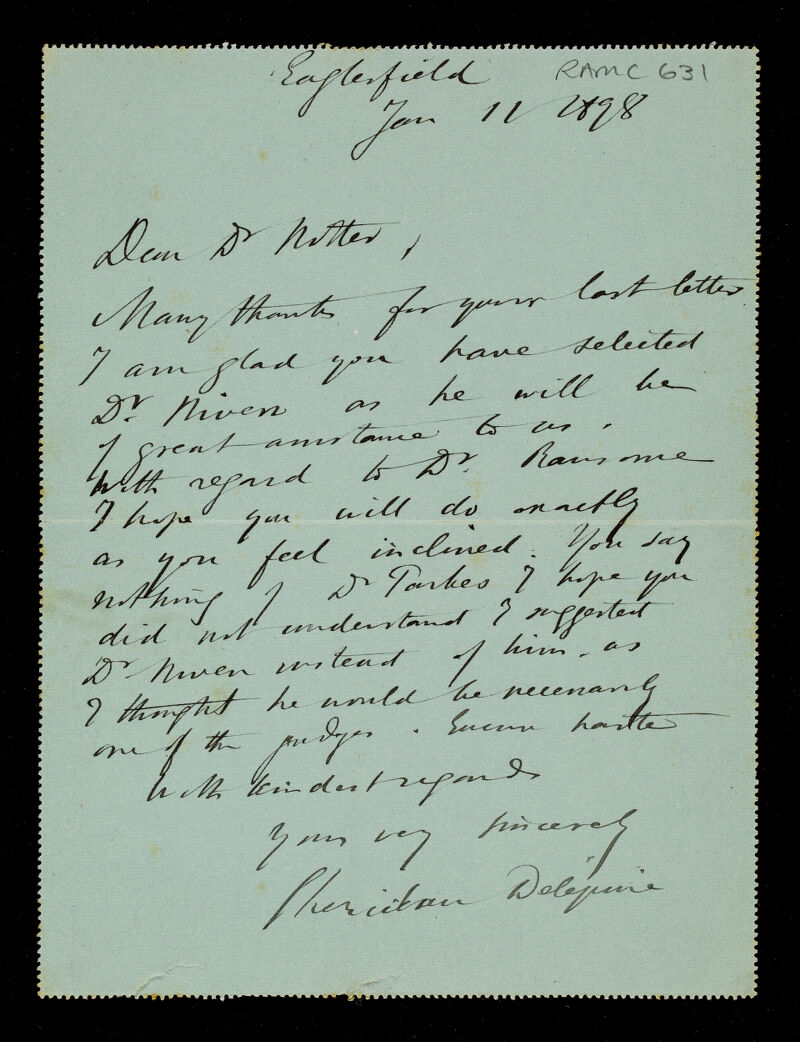 Eaglesfield RAMC 631
Jan 11 1898
Dear Dr Notter,
Many thanks for your last letter
I am glad you have selected
Dr. Niven as he will be
of great assistance to us.
With regard to Dr. Ransome
I hope you will do exactly
as you feel inclined. You say
nothing of Dr Parkes I hope you
did not understand I suggested
Dr Niven instead of him. as
I thought he would be necessarily
one of the judges. Excuse haste
With kindest regards
Yours very sincerely
Sheridan Delépine